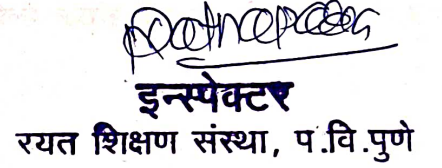 इन्स्पेक्टर
रयत शिक्षण संस्था, प.वि.पुणे